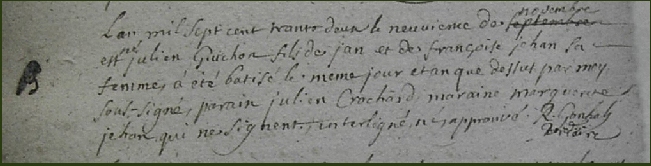 novembre
Lan mil sept cent trante deux le neuvieme de septembre
est julien Guichon fils de jan et de françoise jehan sa
B
femme, a été batisé le meme jour et an que dessut par moy
sous-signé, parain julien Crochard, maraine marguerite
jehan qui ne signent, interligné, approuvé. R.